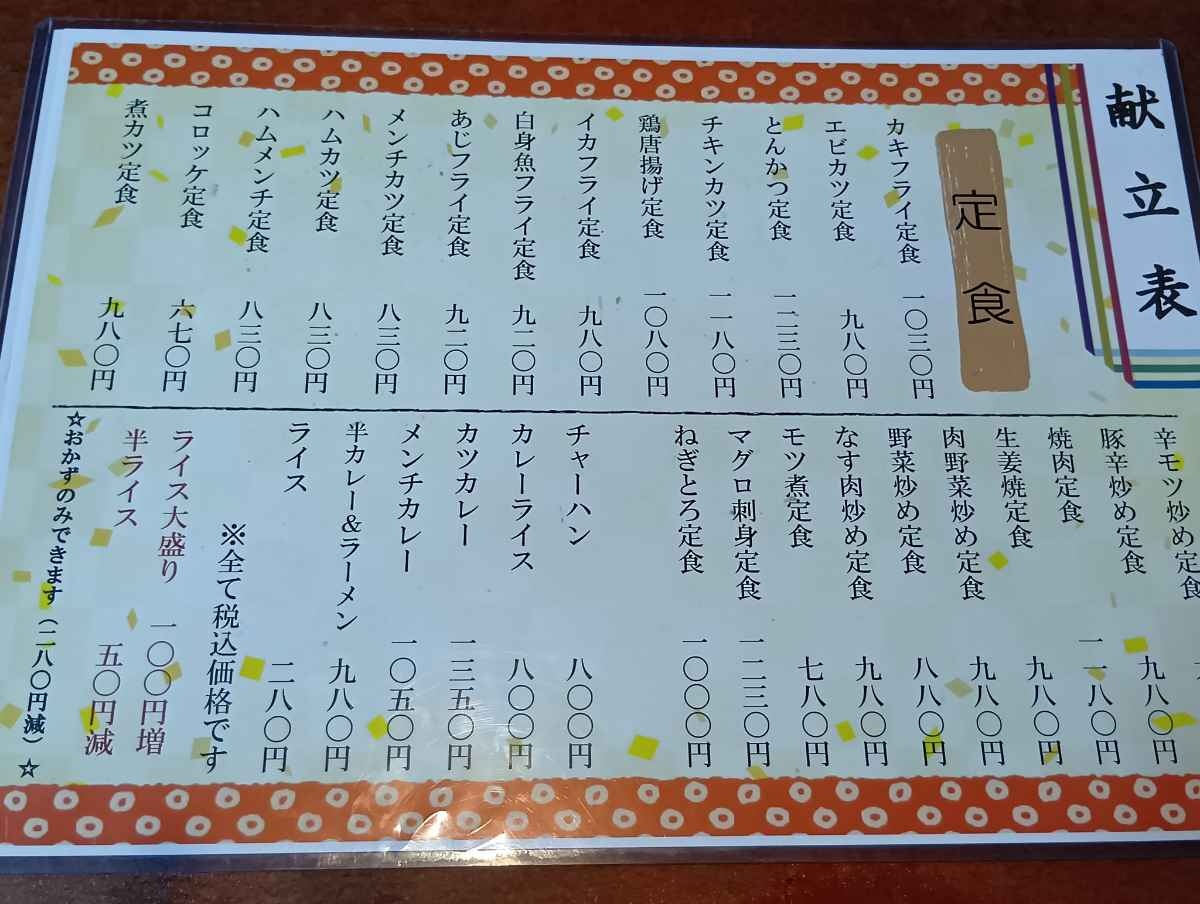 献立表
定食
カキフライ定食 一〇三〇円
エビカツ定食 九八〇円
とんかつ定食 一二三〇円
チキンカツ定食 一一八〇円
鶏唐揚げ定食 一〇八〇円
イカフライ定食 九八〇円
白身魚フライ定食 九二〇円
あじフライ定食 九二〇円
メンチカツ定食 八三〇円
ハムカツ定食 八三〇円
ハムメンチ定食 八三〇円
コロッケ定食 六七〇円
煮カツ定食 九八〇円
辛モツ炒め定食
豚辛炒め定食 九八〇円
焼肉定食 一一八〇円
生姜焼定食 九八〇円
肉野菜炒め定食 九八〇円
野菜炒め定食 八八〇円
なす肉炒め定食 九八〇円
モツ煮定食 七八〇円
マグロ刺身定食 一二三〇円
ねぎとろ定食 一〇〇〇円
チャーハン 八〇〇円
カレーライス 八〇〇円
カツカレー 一三五〇円
メンチカレー 一〇五〇円
半カレー&ラーメン 九八〇円
ライス 二八〇円
※全て税込価格です
ライス大盛り 一〇〇円増
半ライス 五〇円減
☆おかずのみできます(二八〇円減)☆